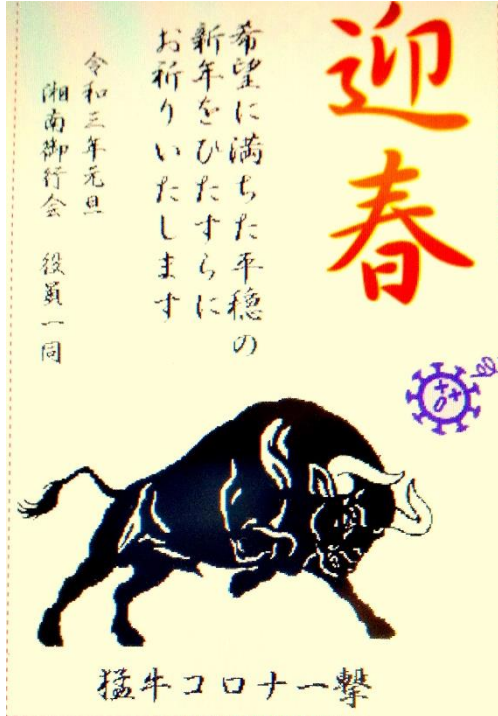 迎春
希望に満ちた平穏の
新年をひたすらに
お祈りいたします
令和三年元旦
湘南御行会 役員一同
猛牛コロナ一撃